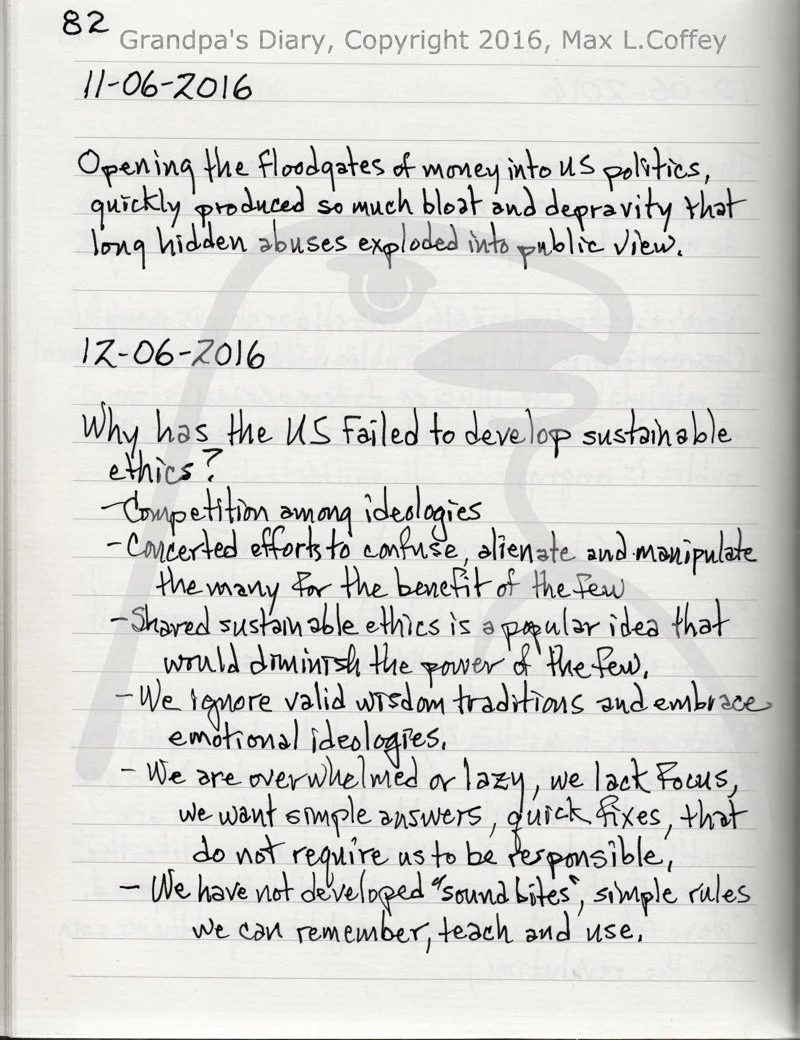 82
Grandpa's Diary, Copyright 2016, Max L.Coffey
11-06-2016
Opening the floodgates of money into US politics,
quickly produced so much bloat and depravity that
long hidden abuses exploded into public view.
12-06-2016
Why has the US failed to develop sustainable
ethics?
- Competition among ideologies
- Concerted efforts to confuse, alienate and manipulate
the many for the benefit of the few
- Shared sustainable ethics is a popular idea that
would diminish the power of the few.
- We ignore valid wisdom traditions and embrace
emotional ideologies.
- We are overwhelmed or lazy, we lack focus,
we want simple answers, quick fixes, that
do not require us to be responsible,
- We have not developed "sound bites", simple rules
we can remember, teach and use.